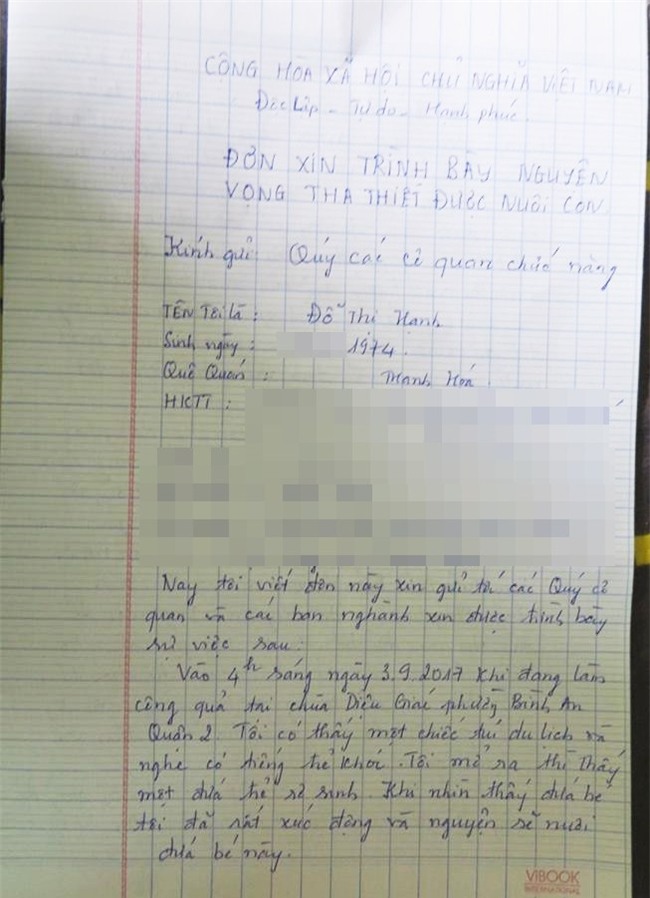 CỘNG HÒA XÃ HỘI CHỦ NGHĨA VIỆT NAM
Độc Lập - Tự do - Hạnh phúc.
ĐƠN XIN TRÌNH BÀY NGUYỆN
VỌNG THA THIẾT ĐƯỢC NUÔI CON
Kính gửi: Quý các cơ quan chức năng
TÊN Tôi là : Đỗ Thị Hạnh
Sinh ngày : 1974.
Quê Quán : Thanh Hoá.
HKTT :
Nay tôi viết đơn này xin gửi tới các Quý cơ
quan và các ban nghành xin được trình bày
sự việc sau:
Vào 4h sáng ngày 3.9.2017 Khi đang làm
công quả tại chùa Diệu Giác phường Bình An
Quận 2. Tôi có thấy một chiếc túi du lịch và
nghe có tiếng trẻ khóc. Tôi mở ra thì thấy
một đứa trẻ sơ sinh. Khi nhìn thấy đứa bé
tôi đã rất xúc động và nguyện sẽ nuôi
đứa bé này.
ViBOOK
INTERNATIONAL